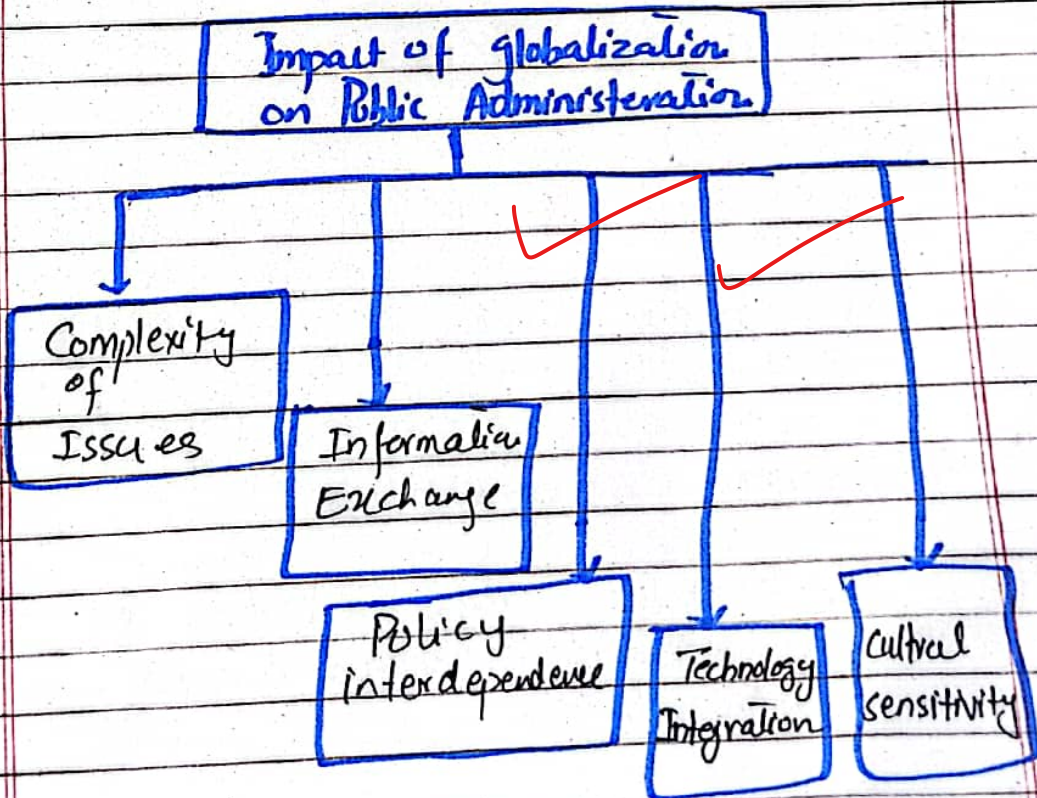 Impact of globalization
on Public Administeration
Complexity
of
Issues
Information
Exchange
Policy
interdependence
Technology
Integration
Cultrel
sensitivity